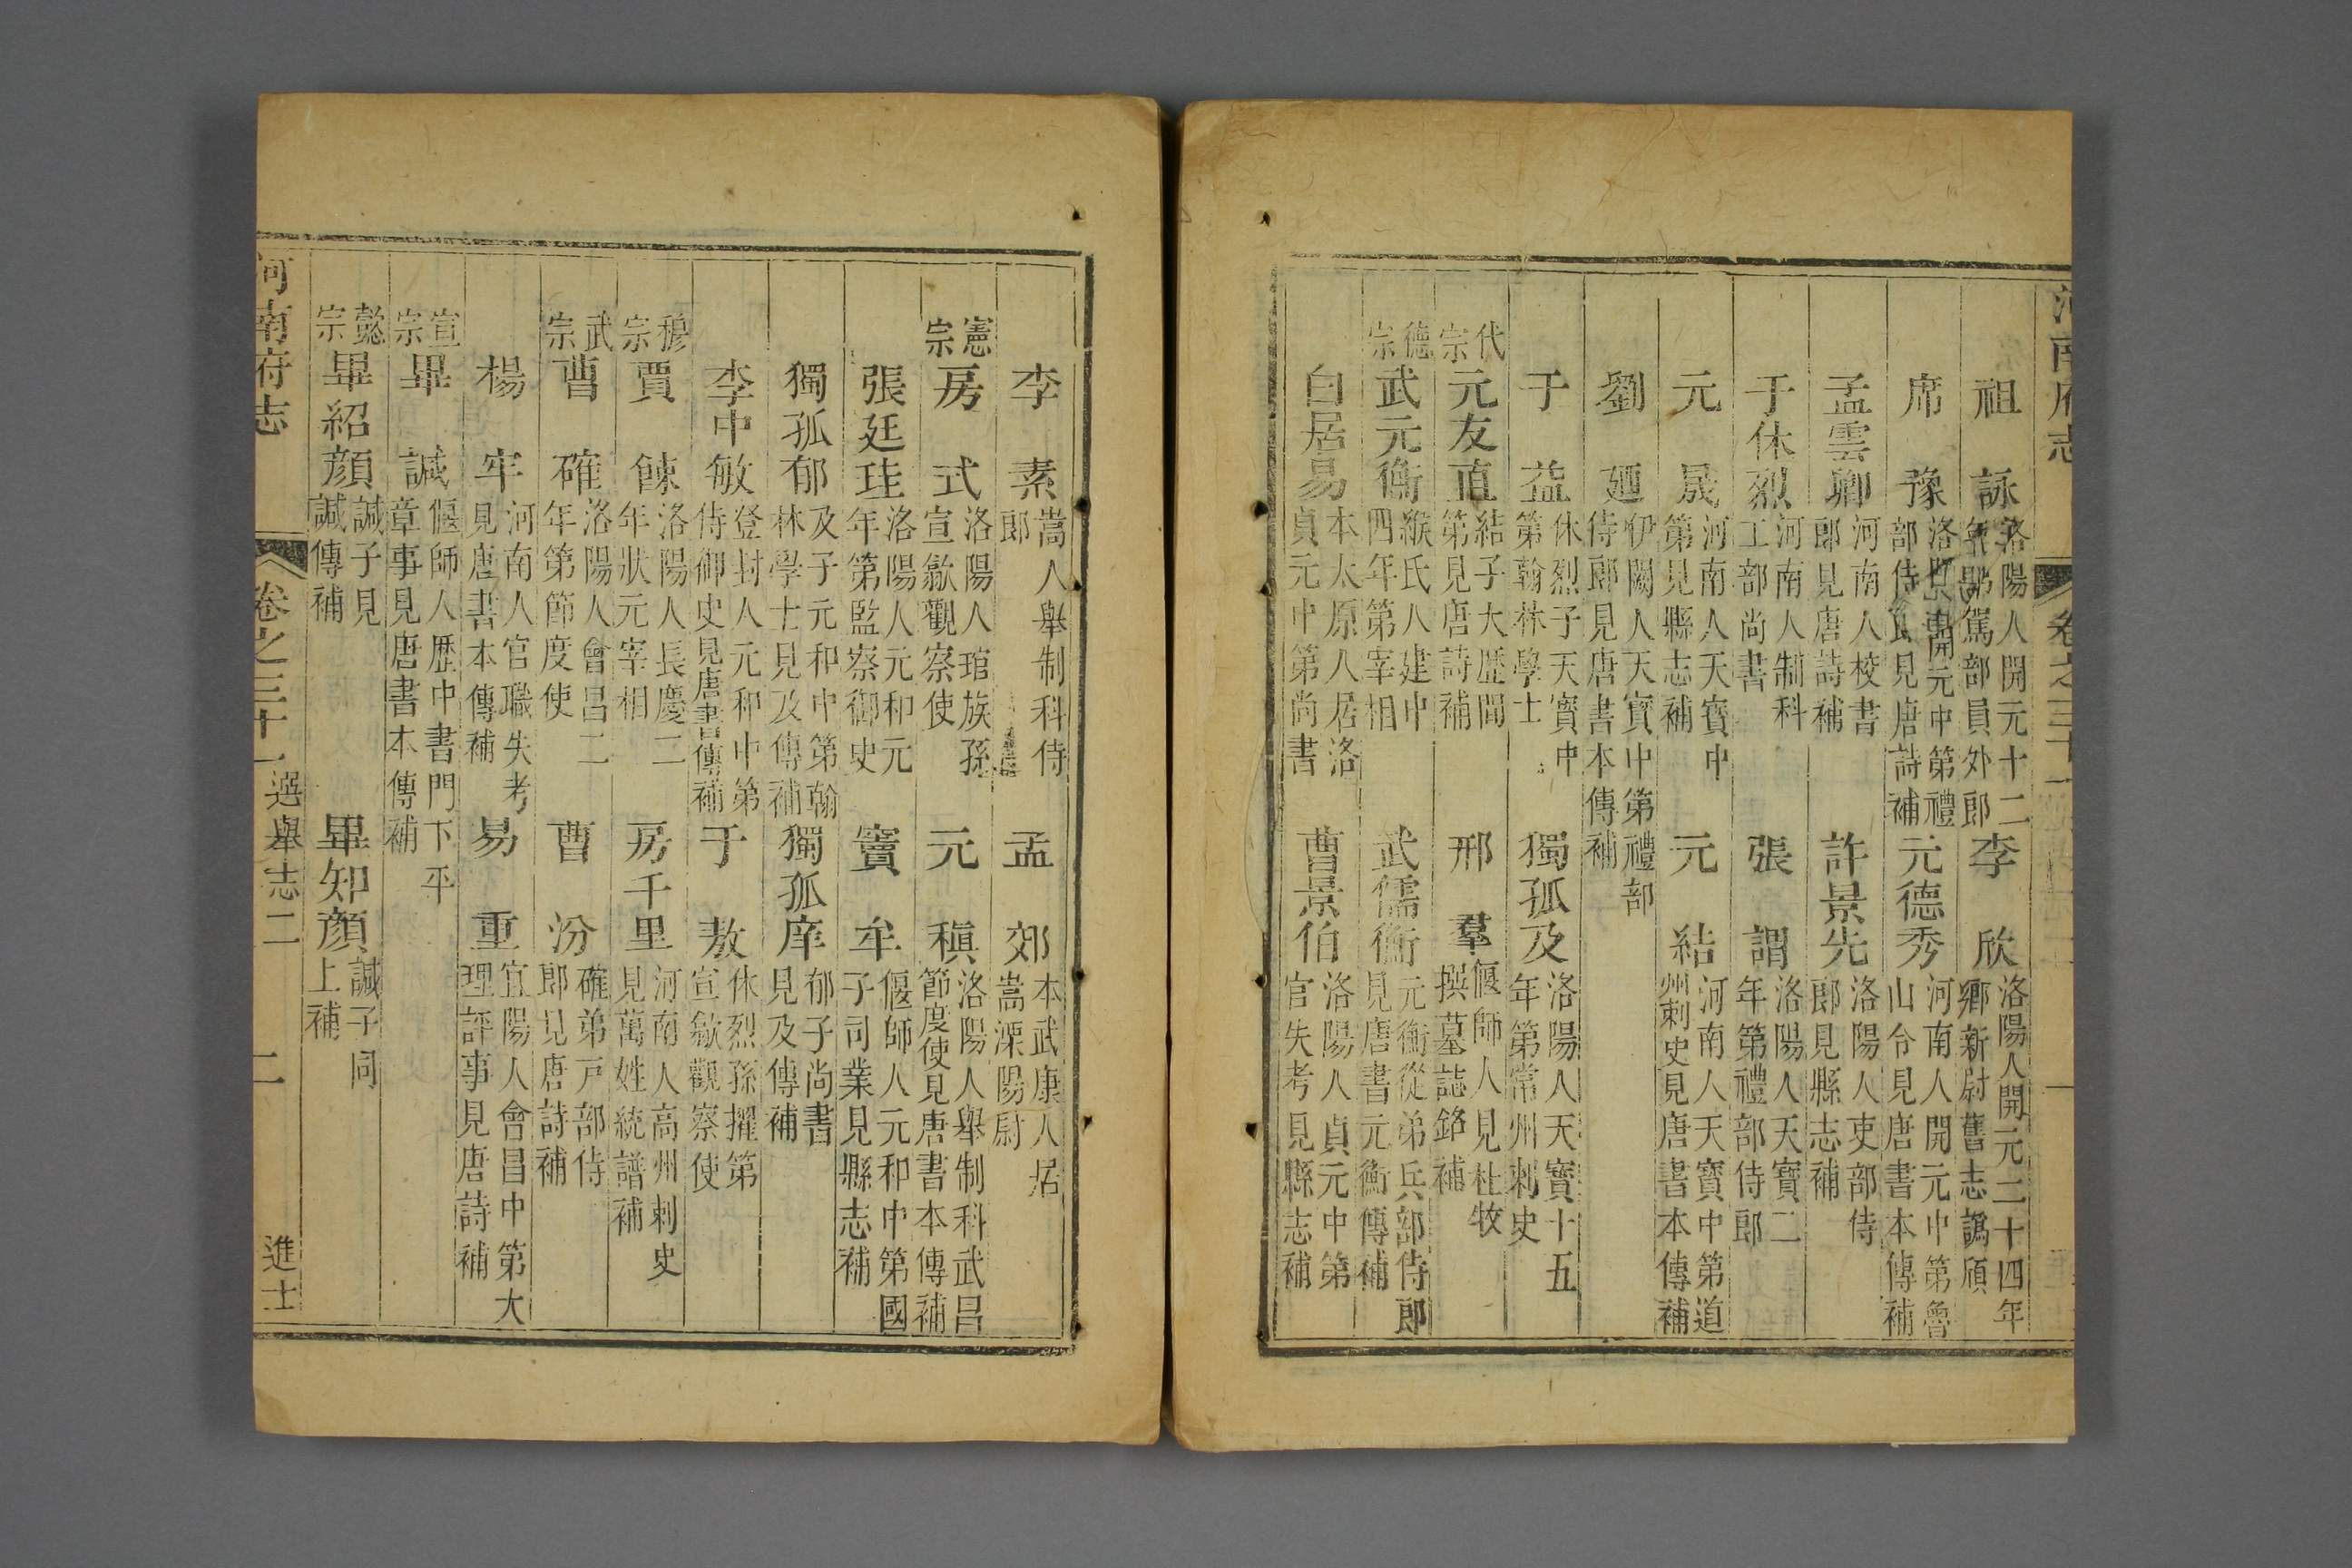 河南府志 卷之三十一
祖詠 洛陽人開元十二年駕部員外郎 李欣 洛陽人開元二十四年鄉新尉舊志譌頎
席豫 洛陽開元中第禮部侍郎見唐詩補 元德秀 河南人開元中第魯山令見唐書本傳補
孟雲卿 河南人校書郎見唐詩補 許景先 洛陽人吏部侍郎見縣志補
于休烈 河南人制科工部尚書 張謂 洛陽人天寶二年第禮部侍郎
元晟 河南人天寶中第見縣志補 元結 河南人天寶中第道州刺史見唐書本傳補
劉廼 伊闕人天寶中第禮部侍郎見唐書本傳補
于益 休烈子天寶中第翰林學士 獨孤及 洛陽人天寶十五年第常州刺史
代宗 元友直 結子大歷間第見唐詩補 邢羣 偃師人見杜牧撰墓誌銘補
德宗 武元衡 緱氏人建中四年第宰相 武儒衡 元衡從弟兵部侍郎見唐書元衡傳補
白居易 本太原人居洛貞元中第尚書 曹景伯 洛陽人貞元中第官失考見縣志補
李素 嵩人舉制科侍郎 孟郊 本武康人居嵩溧陽尉
憲宗 房式 洛陽人琯族孫宣歙觀察使 元稹 洛陽人舉制科武昌節度使見唐書本傳補
張廷珪 洛陽人元和元年第監察御史 竇牟 偃師人元和中第國子司業見縣志補
獨孤郁 及子元和中第翰林學士見及傳補 獨孤庠 郁子尚書見及傳補
李中敏 登封人元和中第侍御史見唐書本傳補 于敖 休烈孫擢第宣歙觀察使
穆宗 賈餗 洛陽人長慶二年狀元宰相 房千里 河南人高州刺史見萬姓統譜補
武宗 曹確 洛陽人會昌二年第節度使 曹汾 確弟戸部侍郎見唐詩補
楊牢 河南人官職失考見唐書本傳補 易重 宜陽人會昌中第大理評事見唐詩補
宣宗 畢諴 偃師人歷中書門下平章事見唐書本傳補
懿宗 畢紹顏 諴子見諴傳補 畢知顏 諴子同上補
河南府志 卷之三十一 選舉志二 進士 二